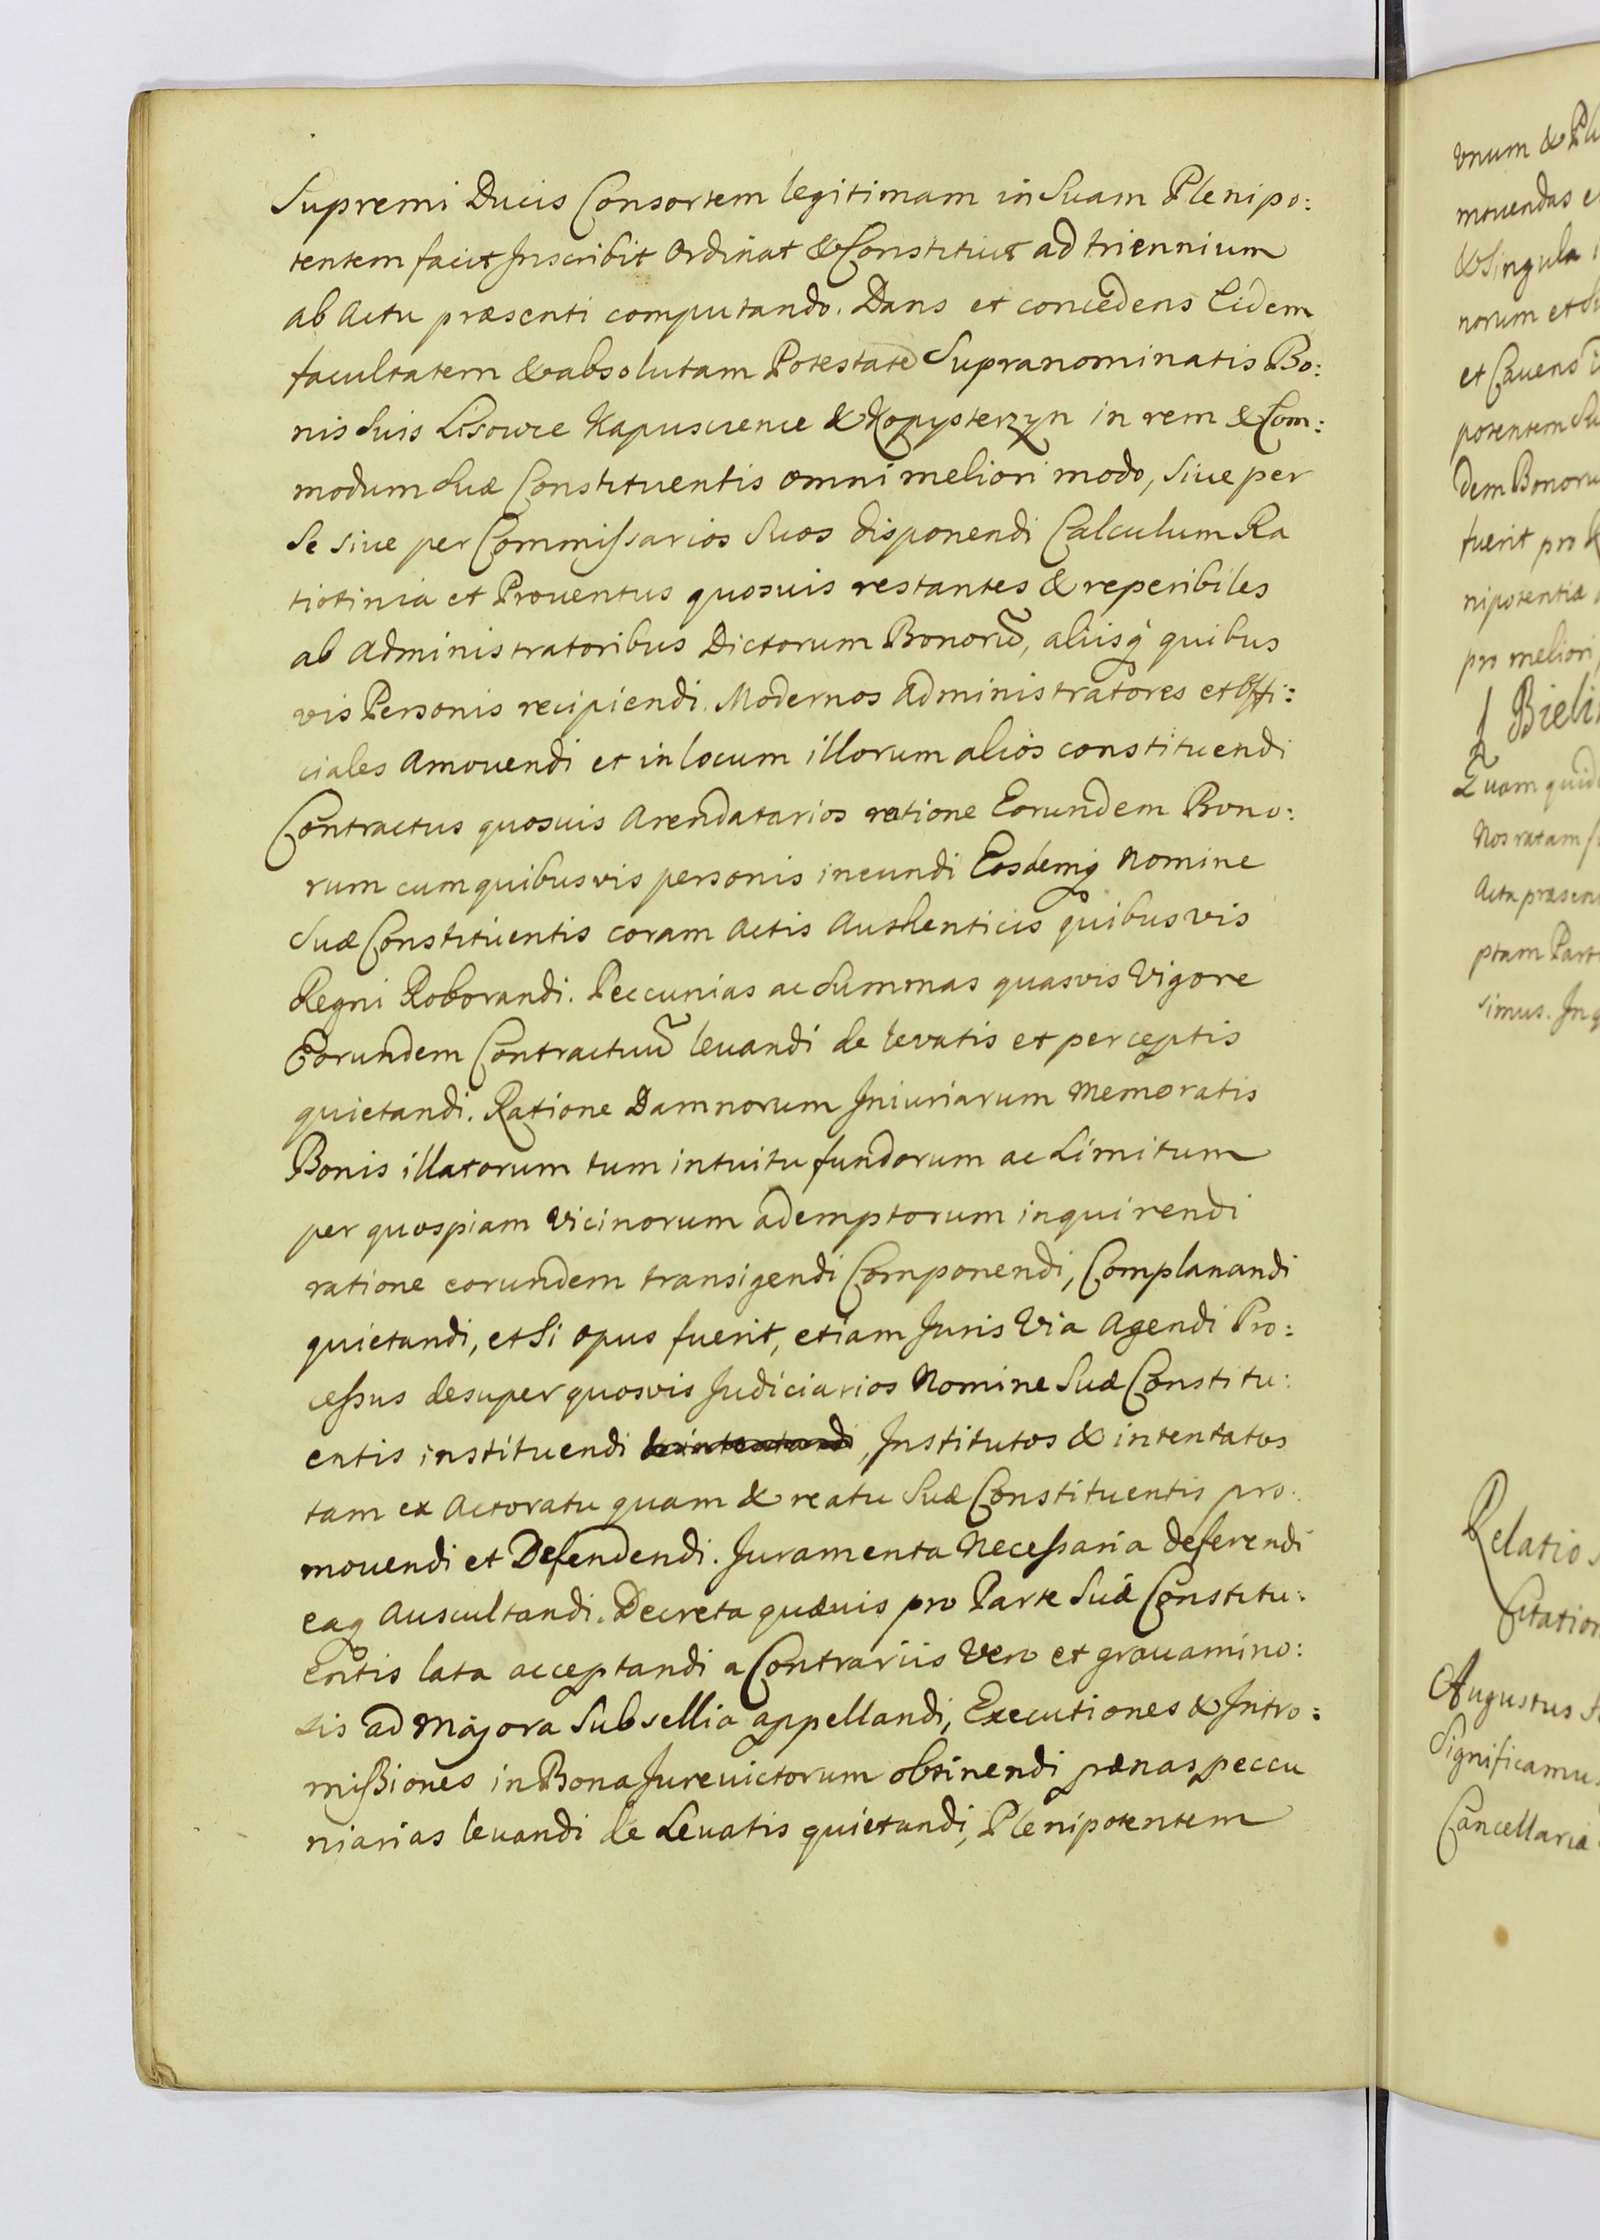 Supremi Ducis Consortem legitimam in Suam Plenipo:
tentem facit Jnscribit Ordinat & Constituit ad triennium
ab Actu præsenti computando. Dans et concedens Eidem
facultatem & absolutam Potestatē Supranominatis Bo:
nis Suis Lisowce Kapuscience & Kopysterzyn in rem & Com:
modum Suæ Constituentis omni meliori modo, Siue per
Se siue per Commissarios Suos disponendi Calculum Ra
tiotinia et Prouentus quosuis restantes & reperibiles
ab Administratoribus Dictorum Bonorū, aliisq quibus
vis Personis recipiendi. Modernos Administratores et Offi:
ciales Amouendi et in locum illorum alios constituendi
Contractus quosuis Arendatarios ratione Eorundem Bono:
rum cum quibusvis personis ineundi Eosdemq Nomine
Suæ Constituentis coram Actis Authenticis quibusvis
Regni Roborandi. Peccunias ac Summas quasvis Vigore
Eorundem Contractuū leuandi de levatis et perceptis
quietandi. Ratione Damnorum Jniuriarum Memoratis
Bonis illatorum tum intuitu fundorum ac Limitum
per quospiam Vicinorum ademptorum inquirendi
ratione eorundem transigendi Componendi, Complanandi
quietandi, et Si opus fuerit, etiam Juris Via Agendi Pro:
cessus desuper quosvis Judiciarios Nomine Suæ Constitu:
entis instituendi , Jnstitutos & intentatos
tam ex Actoratu quam & reatu Suæ Constituentis pro:
mouendi et Defendendi. Juramenta Necessaria deferendi
eaq Auscultandi. Decreta quæuis pro Parte Suæ Constitu:
entis lata acceptandi a Contrariis Vero et grauamino:
sis ad Majora Subsellia appellandi, Executiones & Jntro:
missiones in Bona Jureuictorum obtinendi pænas peccu
niarias leuandi de Leuatis quietandi, Plenipotentem
vnum &
mouendas
& Singula
norum et
et Cauens
potentem
dem Bonoru
fuerit pro
nipotentiæ
pro meliori
Bieli
Quam quid
Nos ratam
Acta præsen
ptam Part
simus. Jn
Relatio
Citation
Augustus
Significamus
Cancellaria